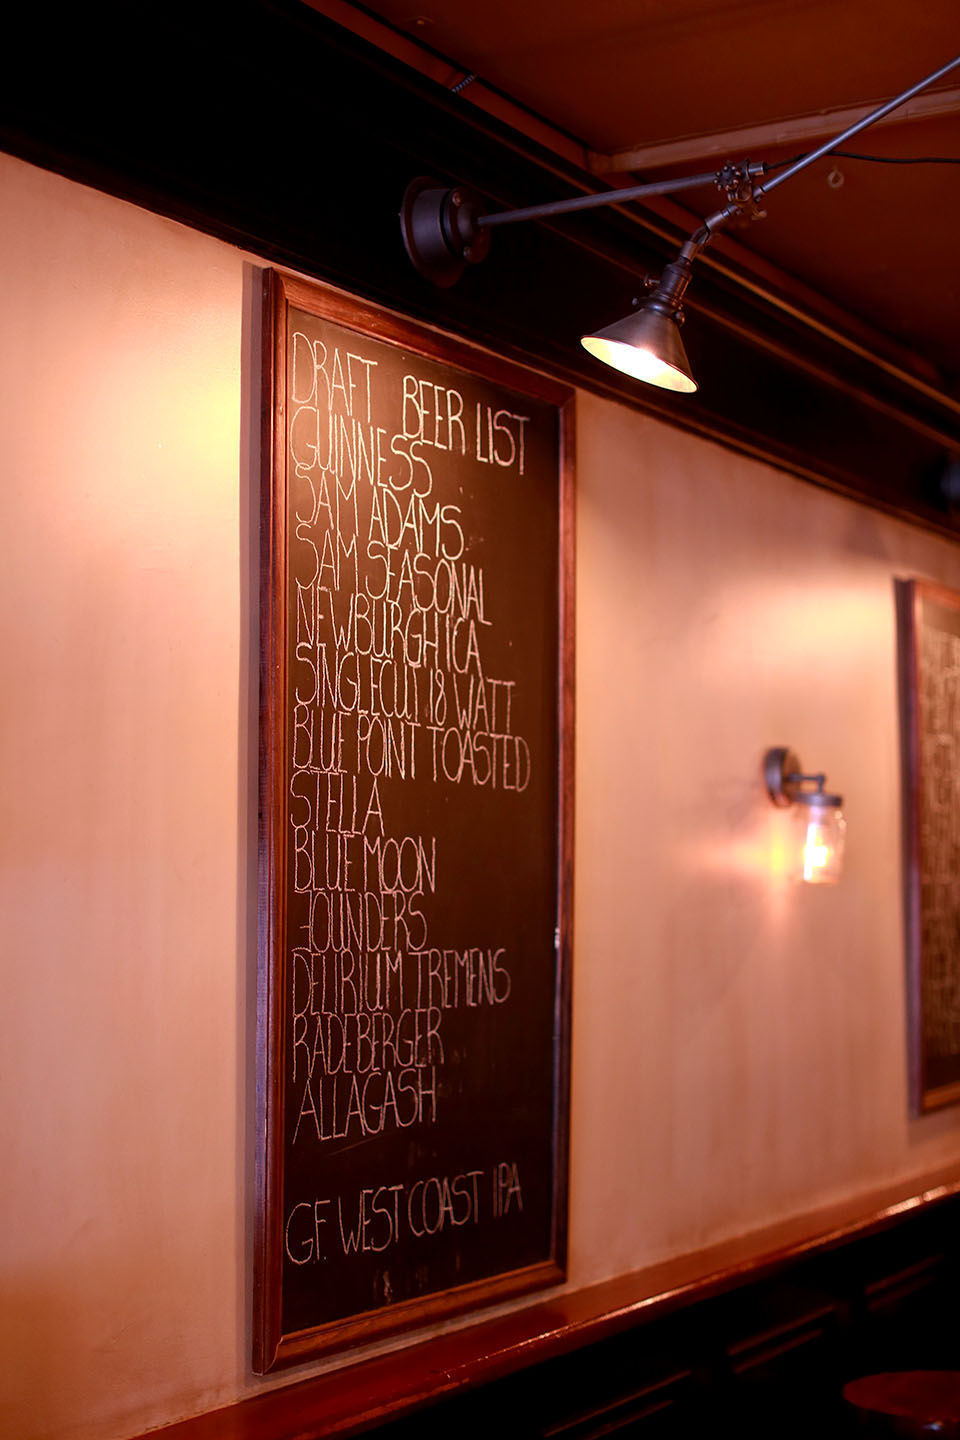 DRAFT BEER LIST
GUINNESS
SAM ADAMS
SAM SEASONAL
NEWBURGH ICA
SINGLECUT 18 WATT
BLUE POINT TOASTED
STELLA
BLUE MOON
FOUNDERS
DELIRIUM TREMENS
RADEBERGER
ALLAGASH
G.F. WEST COAST IPA